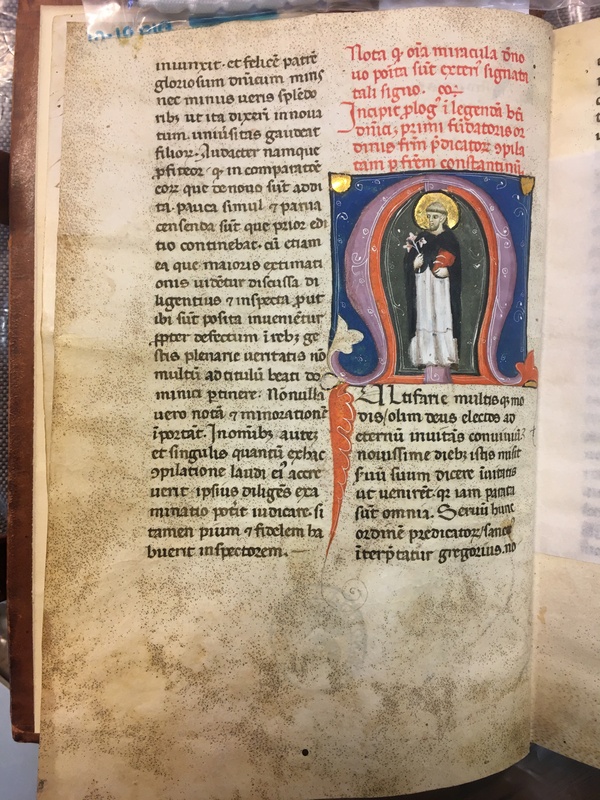 iniunxit. et felicē patrē
gloriosum dnīcum mīns
nec minus ueris splēdo
ribꝫ ut ita dixerī innoua
tum. uniūsitas gaudeat
filioꝝ. Audacter namque
ꝓfiteor. ꝙ in comparatōe
eoꝝ que de nouo sūt addi
ta. pauca simul ⁊ parua
censenda sūt que prior edi
tio continebat. cū etiam
ea que maioris extimati
onis uidētur discussa di
ligentius ⁊ inspecta ꝓut
ibi sūt posita inueniētur
ꝓpter defectum ī rebꝫ ge
stis plenarie ueritatis nō
multū ad titulū beati do
minici ꝑtinere. Nōnulla
uero notā ⁊ minorationē
īportāt. In omībꝫ autez
et singulis quantū ex hac
ꝯpilatione laudi eiꝰ accre
uerit ipsius diligēs exa
minatio potīt iudicare. si
tamen pium ⁊ fidelem ha
buerit inspectorem.
Nota ꝙ oīa miracula dno
uo poīta sūt exteriꝰ signata
tali signo.
Incipit ꝓlogꝰ ī legendā bti
dnīci, primi fūdatoris or
dinis frm p̄dicatoꝝ ꝯpila
tam ꝑ frem constantinū.
Multifarie multisqꝫ mo
dis olim deus electos ad
eternū inuitās conuiuiū
nouissime diebꝫ istis misit
ẜuū suum dicere īuitatis
ut uenirēt. qꝛ iam parata
sūt omnia. Seruū hunc
ordinē predicatoꝝ sancꝰ
īterp̄tatur gregorius. no